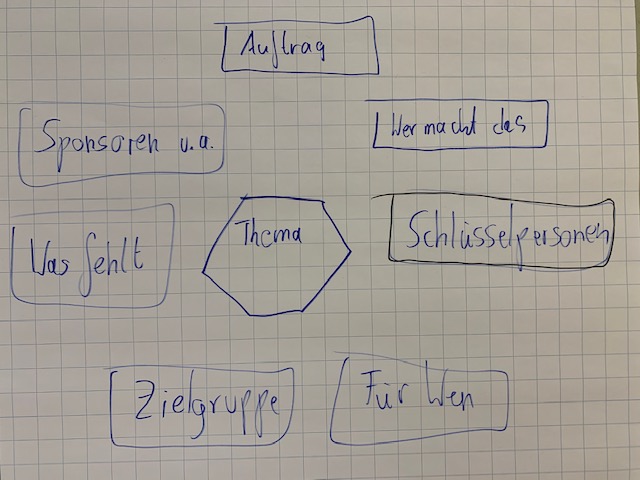 Auftrag
Sponsoren u.a.
Wer macht das
Was fehlt
Thema
Schlüsselpersonen
Zielgruppe
Für Wen